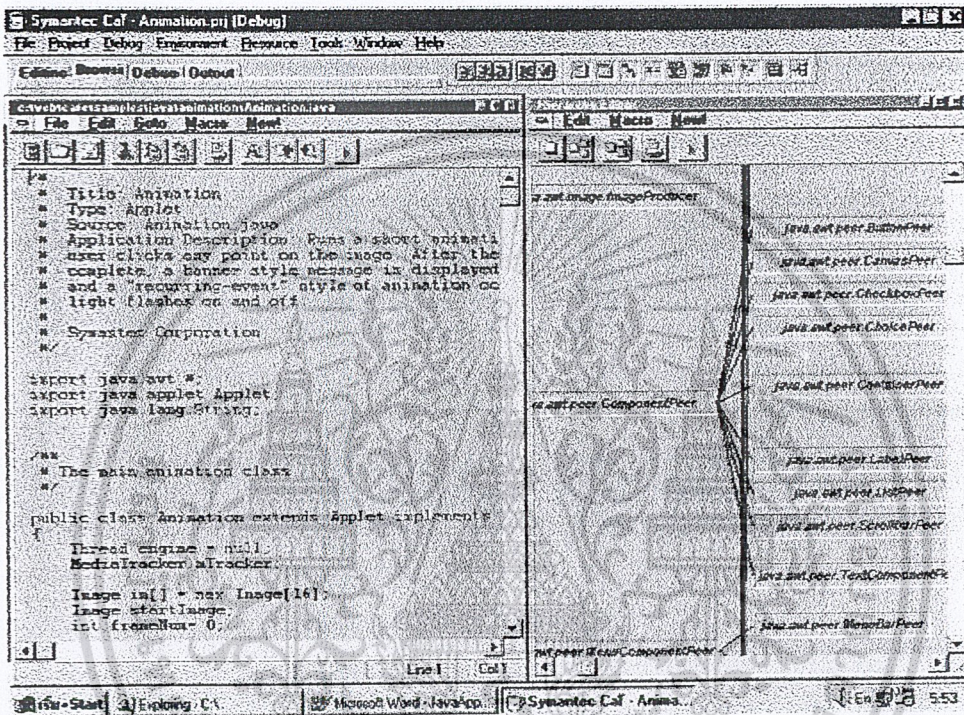 Symantec Caf - Animation.prj [Debug]
File Project Debug Environment Resource Tools Window Help
Editing Browse Debug Output
c:\webcafe\samples\java\animations\Animation.java
File Edit Goto Macro New!
/*
* Title: Animation
* Type: Applet
* Source: Animation.java
* Application Description: Runs a short animati
* user clicks any point on the image. After the
* complete, a banner style message is displayed
* and a "recurring-event" style of animation oc
* light flashes on and off
*
* Symantec Corporation
*/
import java.awt.*;
import java.applet.Applet;
import java.lang.String;
/**
* The main animation class
*/
public class Animation extends Applet implements
{
Thread engine = null;
MediaTracker mTracker;
Image im[] = new Image[16];
Image startImage;
int frameNum= 0;
Line 1 Col 1
Edit Macro New!
va.awt.image.ImageProducer
java.awt.peer.ButtonPeer
java.awt.peer.CanvasPeer
java.awt.peer.CheckboxPeer
java.awt.peer.ChoicePeer
java.awt.peer.ContainerPeer
va.awt.peer.ComponentPeer
java.awt.peer.LabelPeer
java.awt.peer.ListPeer
java.awt.peer.ScrollbarPeer
java.awt.peer.TextComponentPe
java.awt.peer.MenuBarPeer
awt.peer.MenuComponentPeer
เริ่ม-Start Exploring - C:\ Microsoft Word - JavaApp... Symantec Caf - Anima... En 5:53